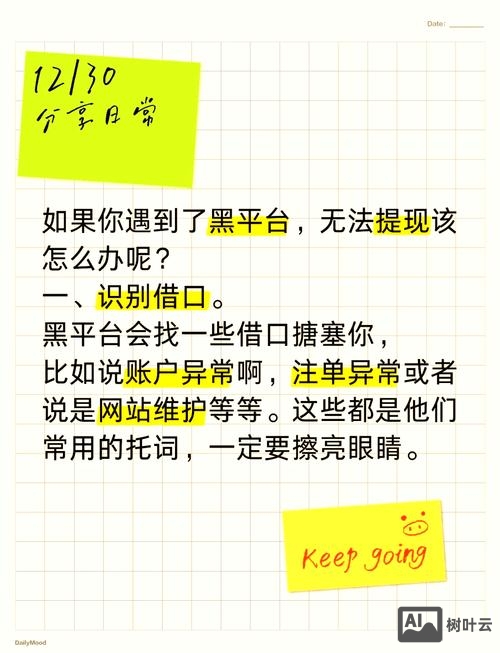 Date:
12/30
分享日常
如果你遇到了黑平台，无法提现该
怎么办呢？
一、识别借口。
黑平台会找一些借口搪塞你，
比如说账户异常啊，注单异常或者
说是网站维护等等。这些都是他们
常用的托词，一定要擦亮眼睛。
Keep going
AI 树叶云
DailyMood